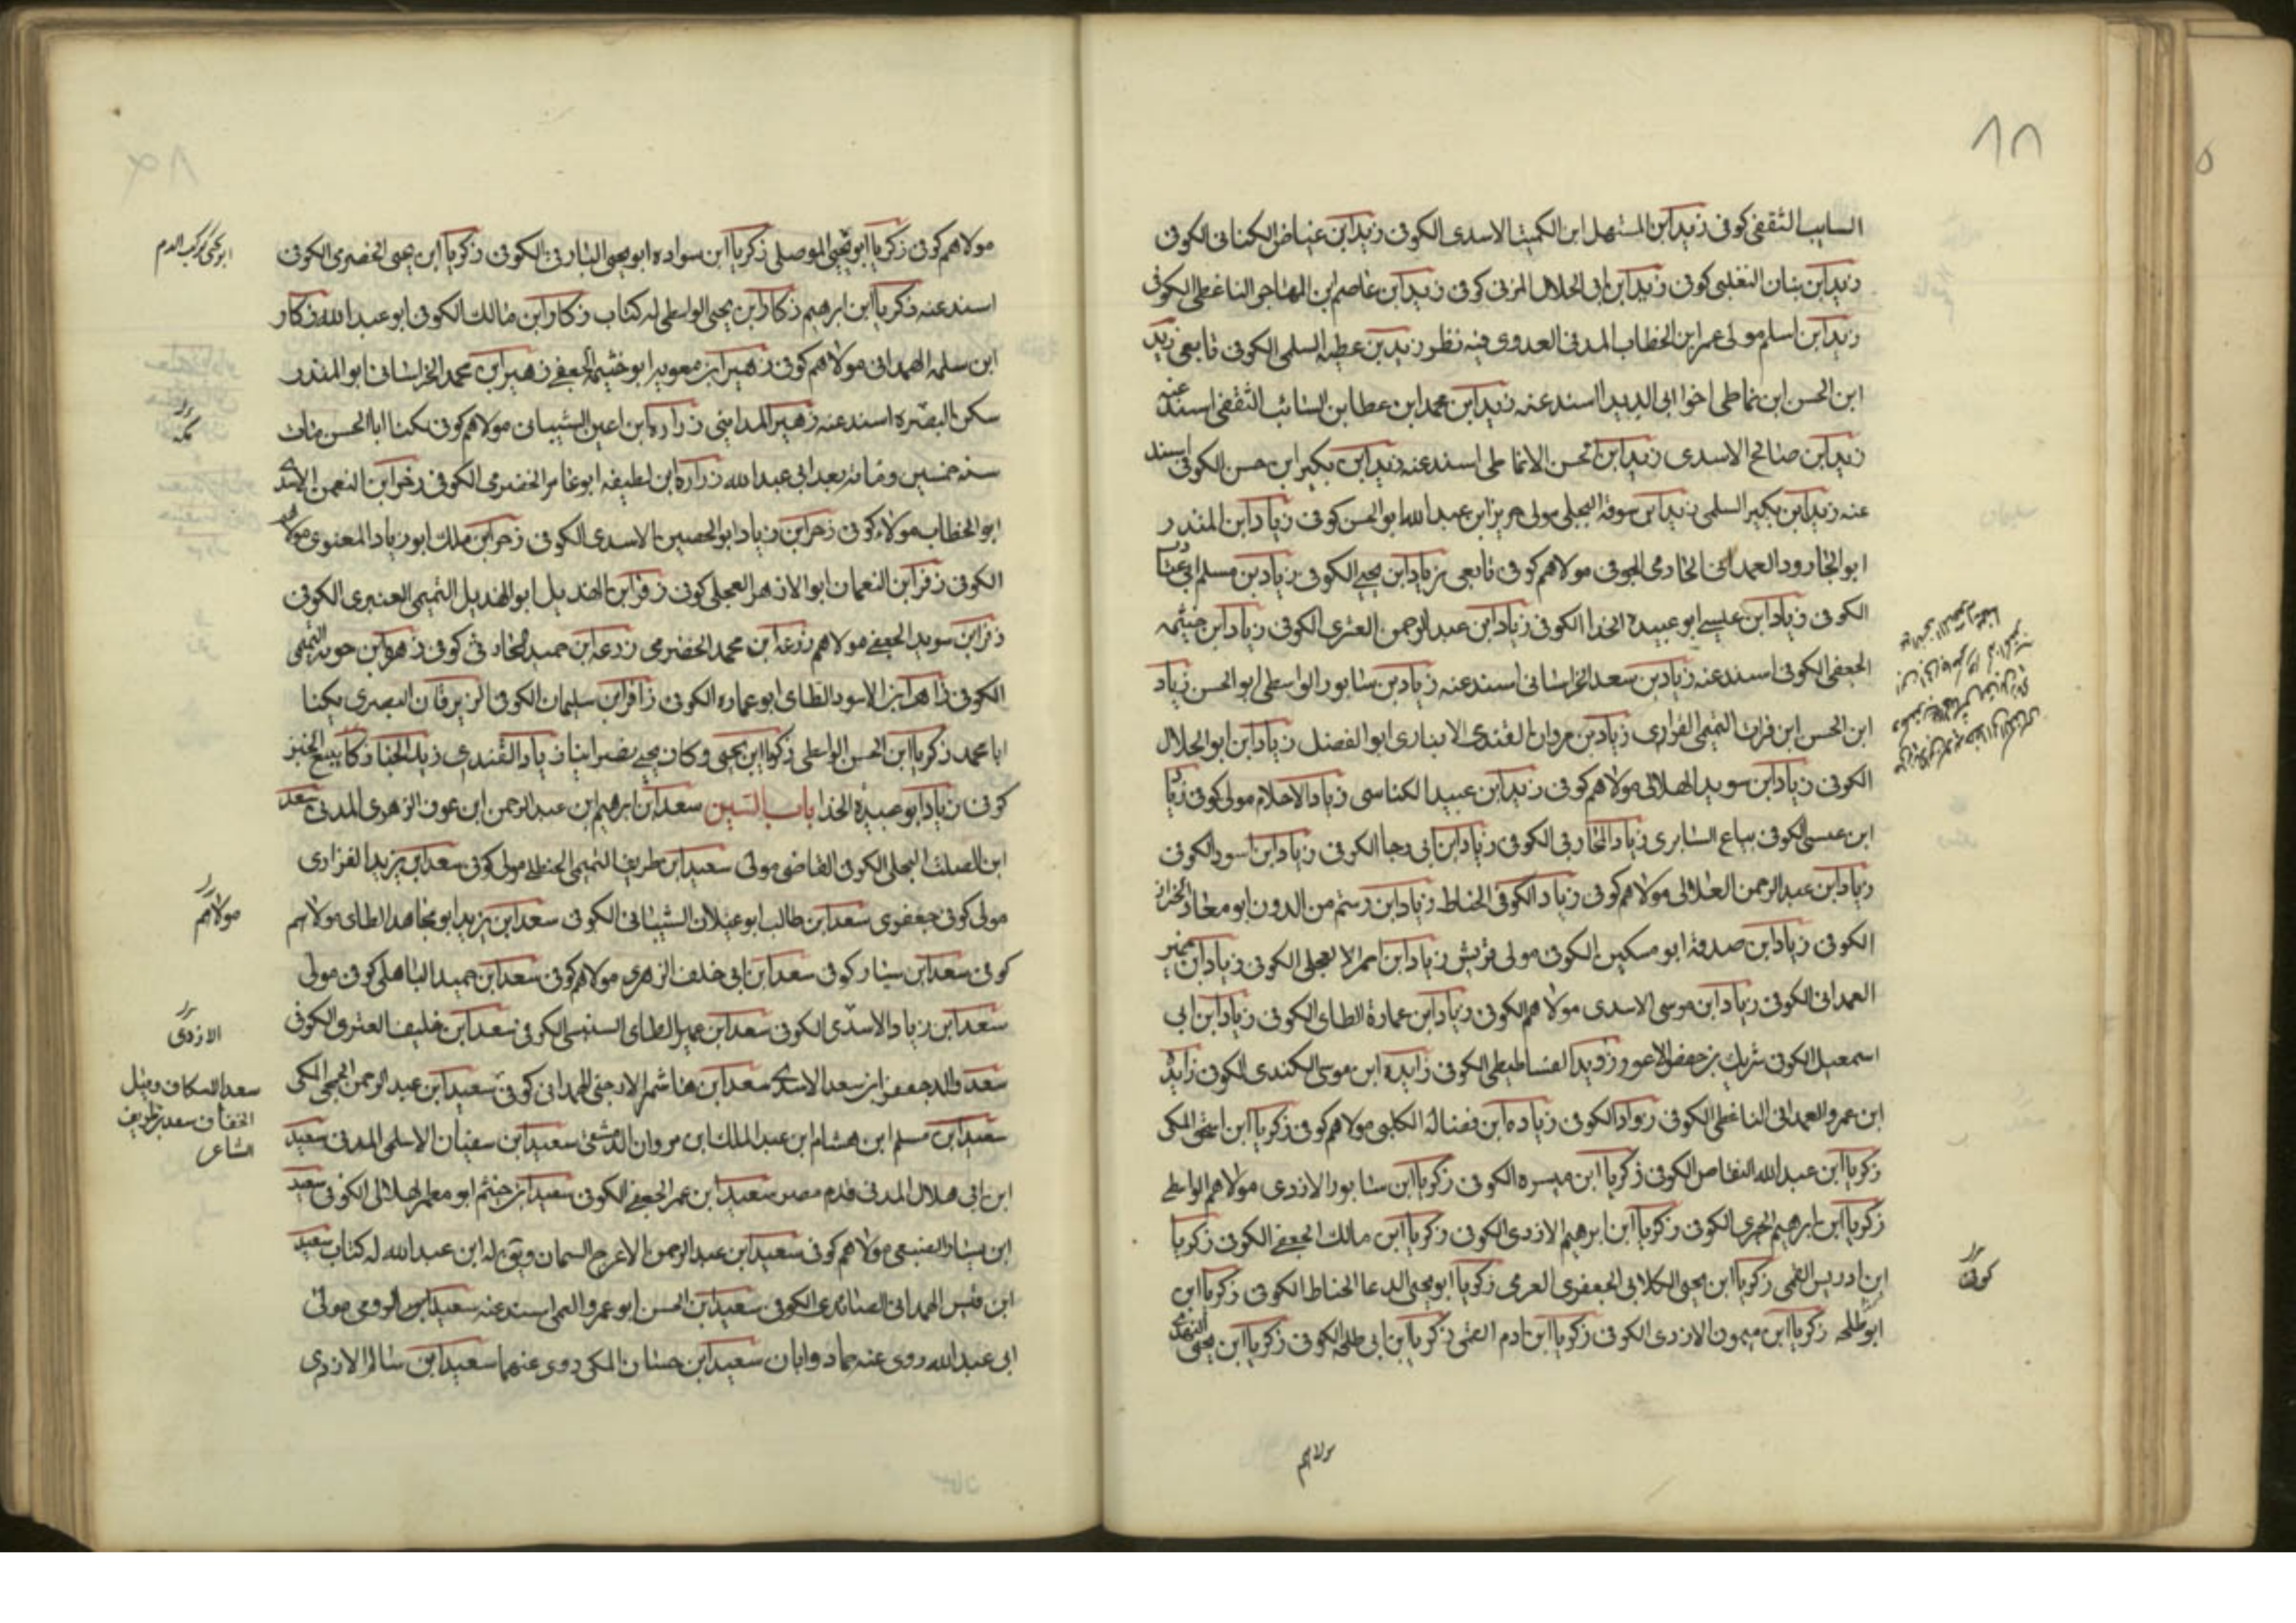 ٨٨
السايب الثقفى كوفى زيد ابن المستهل ابن الكميت الاسدى الكوفى زيد ابن عياض الكنانى الكوفى
زيد ابن بنان التغلبى كوفى زيد ابن ابى الحلال المزنى كوفى زيد ابن عاصم ابن المهاجر الناعطى الكوفى
زيد ابن اسلم مولى عمر ابن الخطاب المدنى العدوى فيه نظر زيد بن عطيه السلمى الكوفى تابعى زيد
ابن الحسن ابن نماطى اخوا ابى الديدا اسند عنه زيد ابن محمد ابن عطا بن السائب الثقفى اسند عنه
زيد ابن صالح الاسدى زيد ابن الحسن الانماطى اسند عنه زيد ابن بكير ابن حسن الكوفى اسند
عنه زيد ابن بكير السلمى زيد ابن سوقة البجلى مولى جرير ابن عبد الله ابو الحسن كوفى زياد ابن المنذر
ابو الجارود الهمدانى الخارفى الجوفى مولاهم كوفى تابعى زياد ابن يحيى الكوفى زياد بن مسلم ابى عتاب
الكوفى زياد ابن عيسى ابو عبيدة الحذا الكوفى زياد ابن عبد الرحمن العنزى الكوفى زياد ابن خيثمه
الجعفى الكوفى اسند عنه زياد بن سعد الخراسانى اسند عنه زياد بن سابور الواسطى ابو الحسن زياد
ابن الحسن ابن فرات التميمى القزازى زياد بن مروان القندى الانبارى ابو الفضل زياد ابن ابو الحلال
الكوفى زياد ابن سويد الهلالى مولاهم كوفى زيد ابن عبيد الكناسى زياد الاحلام مولى كوفى زياد
ابن عيسى الكوفى بياع السابرى زياد المحاربى الكوفى زياد ابن ابى رجا الكوفى زياد ابن اسود الكوفى
زياد ابن عبد الرحمن الهلالى مولاهم كوفى زياد الكوفى الحناط زياد ابن رستم من الدون ابو معاذ الخزاز
الكوفى زياد ابن صدقة ابو مسكين الكوفى مولى قريش زياد ابن احمر الا لعجلى الكوفى زياد ابن
الهمدانى الكوفى زياد ابن موسى الاسدى مولاهم الكوفى زياد ابن عمارة الطاى الكوفى زياد ابن ابى
اسمعيل الكوفى شريك بن حفص الاعور زويد الفساطيطى الكوفى زايده ابن موسى الكندى الكوفى زايدة
ابن عمرو الهمدانى الناعطى الكوفى رواد الكوفى زياده ابن فضاله الكلبى مولاهم كوفى زكريا ابن اسحق المكى
زكريا ابن عبد الله النقاض الكوفى زكريا ابن ميسره الكوفى زكريا ابن سابور الازدى مولاهم الواسطى
زكريا ابن ابرهيم الحيرى الكوفى زكريا ابن ابرهيم الازدى الكوفى زكريا ابن مالك الجعفى الكوفى زكريا
ابن ادريس القمى زكريا ابن يحيى الكلابى الجعفرى العرمى زكريا ابو يحيى الدعا الحناط الكوفى زكريا ابن
ابو طلحه زكريا ابن ميمون الازدى الكوفى زكريا ابن ادم القمى زكريا ابن ابى طلحه الكوفى زكريا ابن يحيى النهدى
كوفى
مولاهم
مولاهم كوفى زكريا ابو يحيى الموصلى زكريا ابن سواده ابو يحيى البارقى الكوفى زكريا ابن يحيى الحضرمى الكوفى
اسند عنه زكريا ابن ابرهيم زكار ابن يحيى الواسطى له كتاب زكار ابن مالك الكوفى ابو عبد الله زكار
ابن سلمه الهمدانى مولاهم كوفى زهير ابن معويه ابو خثيمه الجعفى زهير ابن محمد الخراسانى ابو المنذر
سكن البصره اسند عنه زهير المداينى زراره ابن اعين الشيبانى مولاهم كوفى يكنا ابا الحسن مات
سنه خمسين ومائه بعد ابى عبد الله زراره ابن لطيفه ابو عامر الحضرمى الكوفى زحر ابن النعمن الاسدى
ابو الخطاب مولاه كوفى زحر ابن زياد ابو الحصين الاسدى الكوفى زحر ابن ملك ابو زياد المعنوى مولاهم
الكوفى زفر ابن النعمان ابو الازهر العجلى كوفى زفر ابن الهذيل ابو الهذيل التميمى العنبرى الكوفى
زفر ابن سويد الجعفى مولاهم زرعه ابن محمد الحضرمى زرعه ابن حميد الحارثى كوفى زهره ابن حويه التميمى
الكوفى زاهر ابن الاسود الطاى ابو عماره الكوفى زافر ابن سليمان الكوفى الزبرقان البصرى يكنا
ابا محمد زكريا ابن الحسن الواسطى زكريا ابن يحيى وكان يحيى نصرانيا زياد القندى زيد الخباز كان يبيع الخبز
كوفى زياد ابو عبيدة الحذا باب السين سعد ابن ابرهيم ابن عبد الرحمن ابن عوف الزهرى المدنى سعد
ابن الصلت البجلى الكوفى القاضى مولى سعيد ابن طريف التميمى الحنظلى مولى كوفى سعد ابن يزيد الفزارى
مولى كوفى جعفرى سعد ابن طالب ابو غيلان الشيبانى الكوفى سعد ابن يزيد ابو مجاهد الطاى مولاهم
كوفى سعد ابن سيار كوفى سعد ابن ابى خلف الزهرى مولاهم كوفى سعد ابن حميد الباهلى كوفى مولى
سعد ابن زياد الاسدى الكوفى سعد ابن عمير الطاى السنبسى الكوفى سعد ابن خليفه العنزى الكوفى
سعد والد جعفر ابن سعد الاسدى سعد ابن هاشم الارحبى الهمدانى كوفى سعيد ابن عبد الرحمن الجمحى المكى
سعيد ابن مسلم ابن هشام ابن عبد الملك ابن مروان الدمشقى سعيد ابن سفيان الاسلمى المدنى سعيد
ابن ابى هلال المدنى قدم مصر سعيد ابن عمر الجعفى الكوفى سعيد ابن خيثم ابو معمر الهلالى الكوفى سعيد
ابن يسار الضبيعى مولاهم كوفى سعيد ابن عبد الرحمن الاعرج السمان ويق له ابن عبد الله له كتاب سعيد
ابن قيس الهمدانى الصائدى الكوفى سعيد ابن الحسن ابو عمرو اسند عنه سعيد الرومى مولى
ابى عبد الله روى عنه حماد وابان سعيد ابن حسان المكى روى عنهما سعيد ابن سالم الازدى
مولاهم
الازدى
سعد الاسكاف وقيل
الخفاف سعد بن طريف
الشاعر